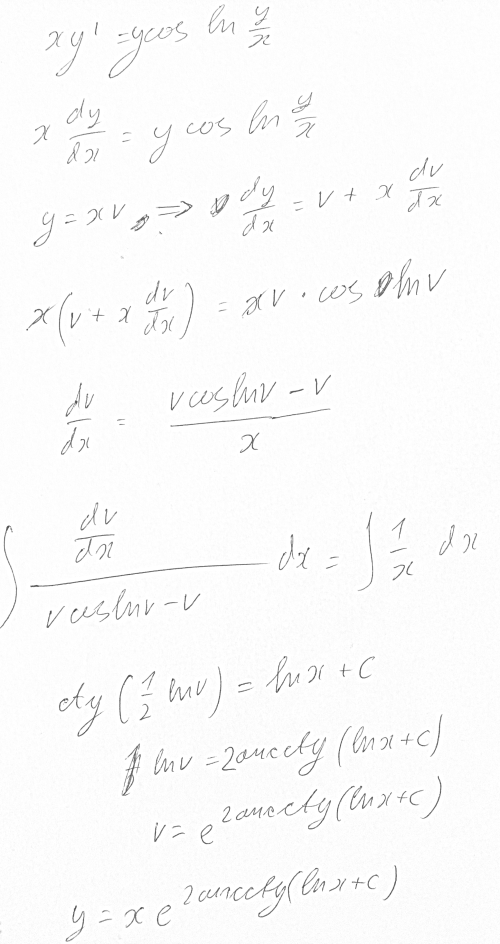 xy' = y cos ln y/x
x dy/dx = y cos ln y/x
y = xv, ⇒ dy/dx = v + x dv/dx
x(v + x dv/dx) = xv · cos ln v
dv/dx = (v cos ln v - v)/x
∫ (dv/dx)/(v cos ln v - v) dx = ∫ 1/x dx
ctg (1/2 ln v) = ln x + c
ln v = 2 arcctg (ln x + c)
v = e^(2 arcctg (ln x + c))
y = x e^(2 arcctg (ln x + c))